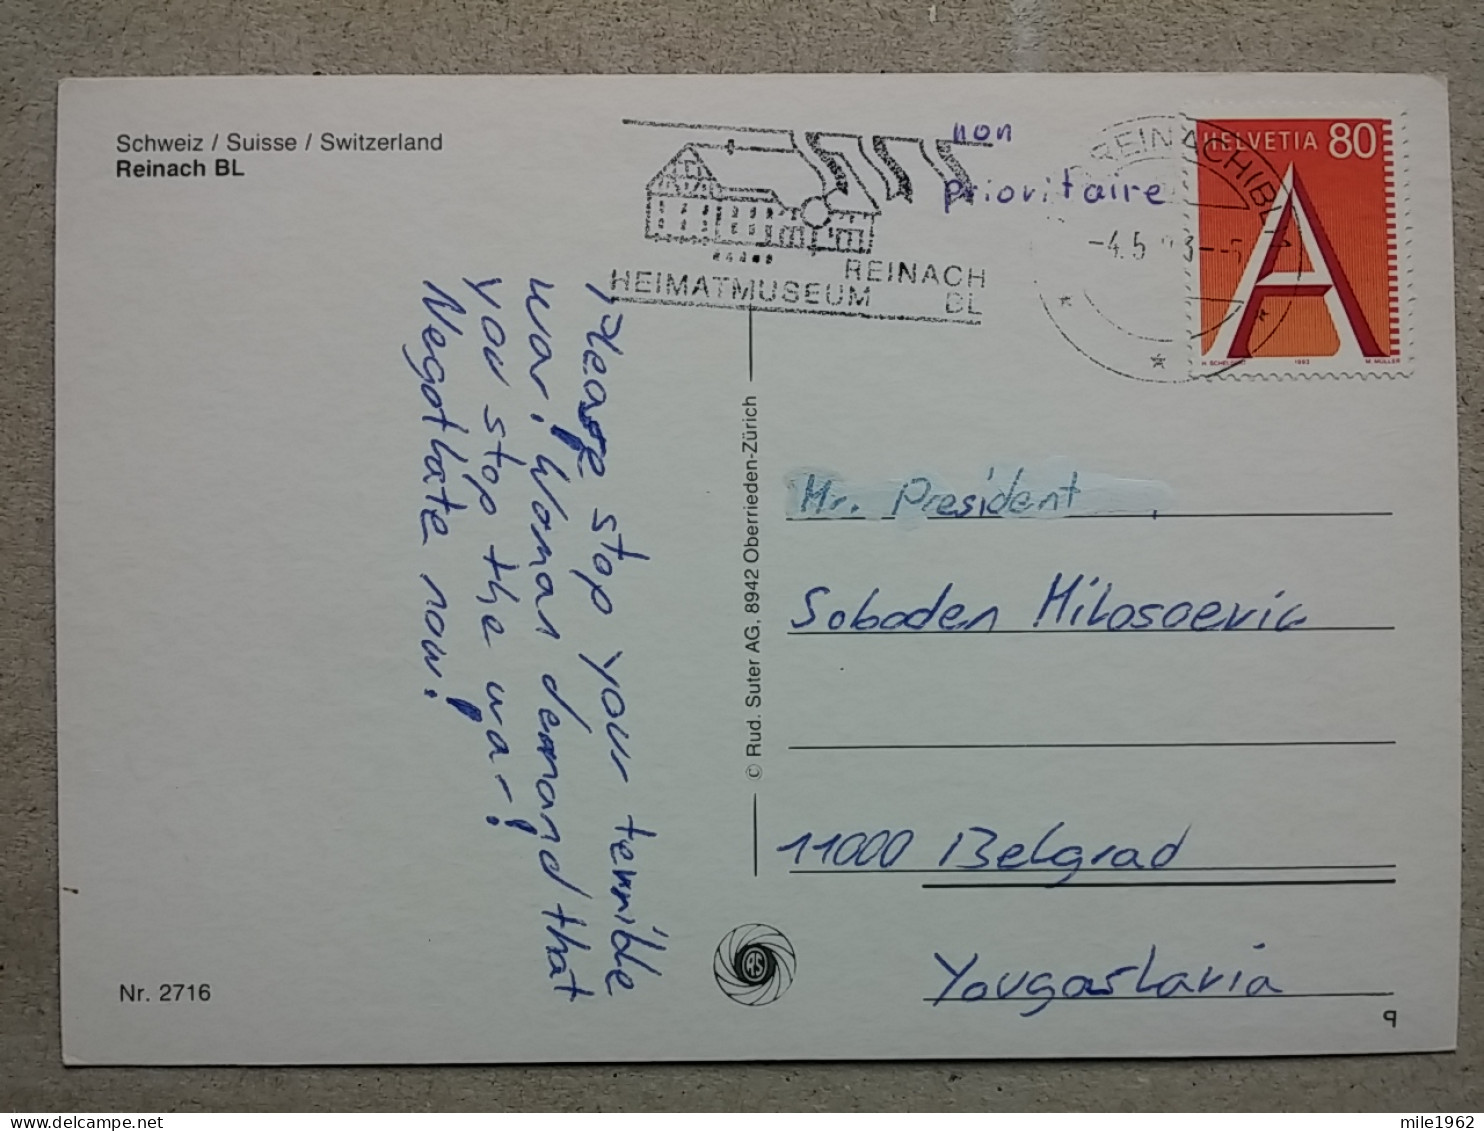 Schweiz / Suisse / Switzerland
Reinach BL
HEIMATMUSEUM
REINACH
BL
non
prioritaire
REINACH BL
-4.5
HELVETIA 80
A
1993
M. MÜLLER
Please stop your terrible
war! Woman demand that
you stop the war!
Negotiate now!
© Rud. Suter AG, 8942 Oberrieden-Zürich
Mr. President
Soboden Milosoevic
11000 Belgrad
Yougoslavia
RS
Nr. 2716
9
mile1962